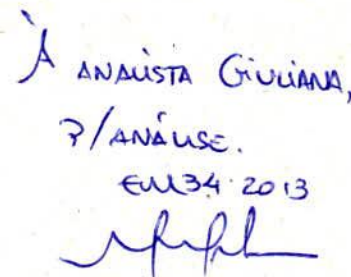 À ANALISTA GIULIANA,
P/ANÁLISE.
EM 3.4.2013